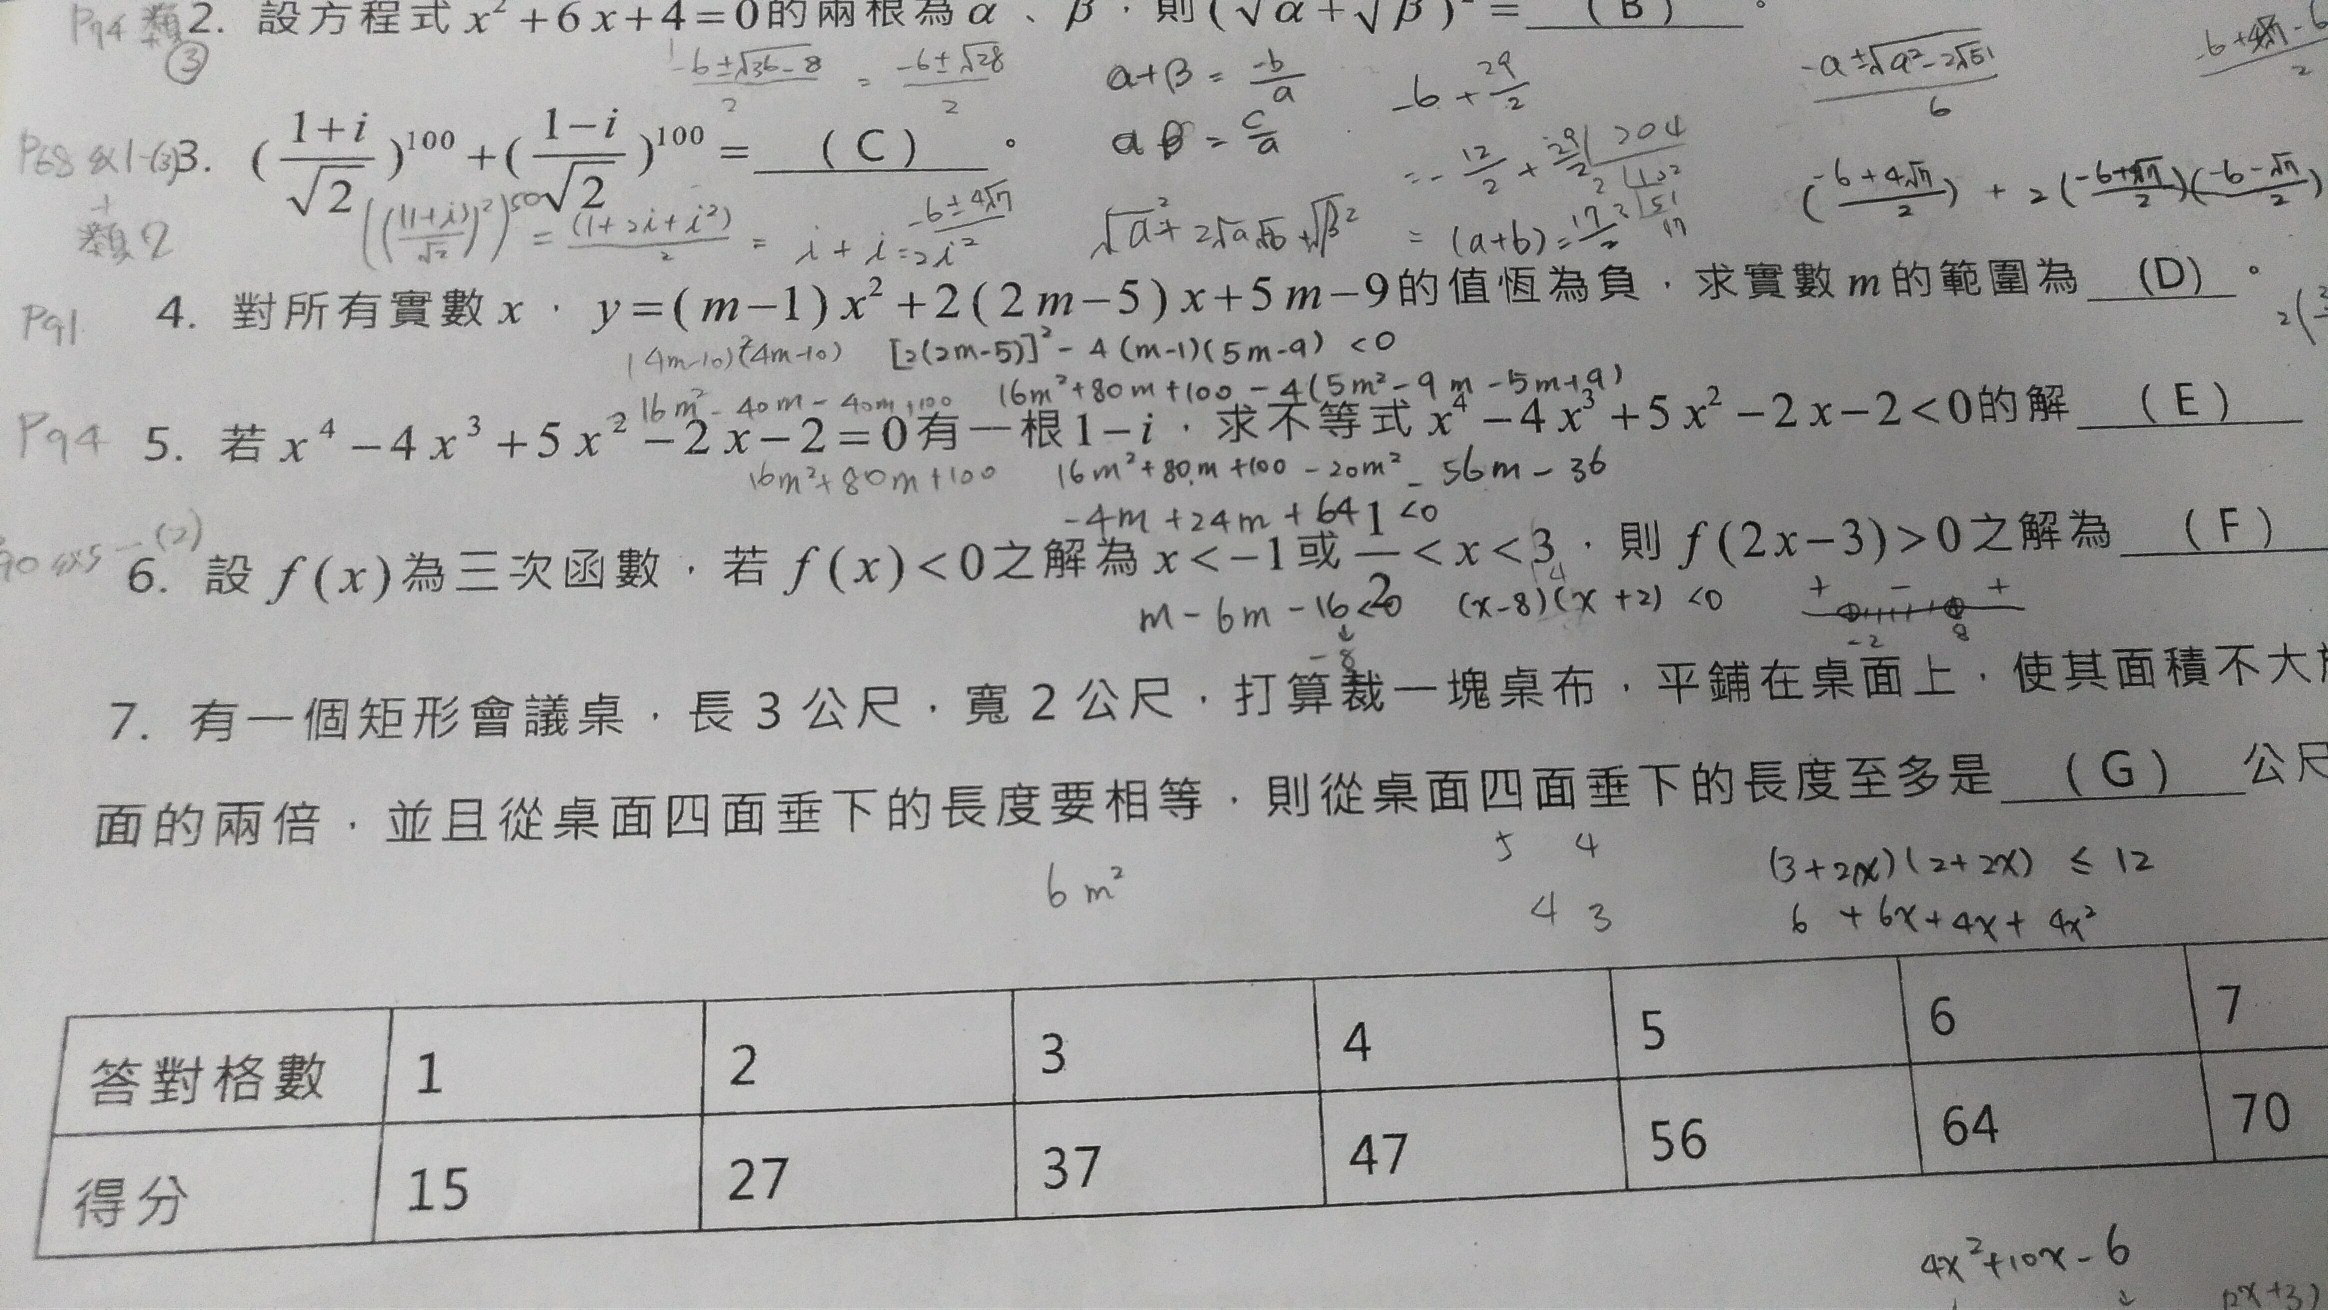 P74 類③ 2. 設方程式 x² + 6x + 4 = 0 的兩根為 α、β，則 (√α + √β)² = (B)。
-6±√36-8 / 2 = -6±√28 / 2
α+β = -b/a
αβ = c/a
-6 + 29/2
-a±√a²-2√51 / 6
P68 ex1-(3) 3. ((1+i)/√2)^100 + ((1-i)/√2)^100 = (C)。
類2
(((1+i)/√2)²)^50 = (1+2i+i²)/2 = i + i = 2i²
-6±4√7 / 2
√a² + 2√a√b + √β² = (a+b) = 17/2
= -12/2 + 29/2
204
(-6+4√7 / 2) + 2(-6+√7 / 2)(-6-√7 / 2)
P91 4. 對所有實數 x，y = (m-1)x² + 2(2m-5)x + 5m-9 的值恆為負，求實數 m 的範圍為 (D)。
(4m-10)(4m-10) [2(2m-5)]² - 4(m-1)(5m-9) <0
16m² - 40m - 40m + 100 16m²+80m+100 - 4(5m²-9m-5m+9)
P94 5. 若 x⁴ - 4x³ + 5x² - 2x - 2 = 0 有一根 1-i，求不等式 x⁴ - 4x³ + 5x² - 2x - 2 < 0 的解 (E)
16m²+80m+100 16m²+80m+100-20m² - 56m - 36
-4m + 24m + 64 <0
90 ex5-(2) 6. 設 f(x) 為三次函數，若 f(x) < 0 之解為 x < -1 或 1/2 < x < 3，則 f(2x-3) > 0 之解為 (F)
m - 6m - 16 <0 (x-8)(x+2) <0 + - +
-8 -2 8
7. 有一個矩形會議桌，長 3 公尺，寬 2 公尺，打算裁一塊桌布，平鋪在桌面上，使其面積不大
面的兩倍，並且從桌面四面垂下的長度要相等，則從桌面四面垂下的長度至多是 (G) 公尺
6 m²
5 4
4 3
(3+2x)(2+2x) ≤ 12
6 + 6x + 4x + 4x²
答對格數 1 2 3 4 5 6 7
得分 15 27 37 47 56 64 70
4x²+10x-6